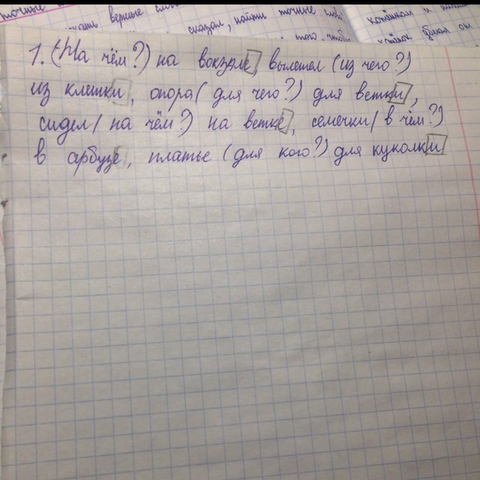 1. (На чём?) на вокзале, вылетел (из чего?)
из клетки, опора (для чего?) для ветки,
сидел (на чём?) на ветке, семечки (в чём?)
в арбузе, платье (для кого?) для куколки